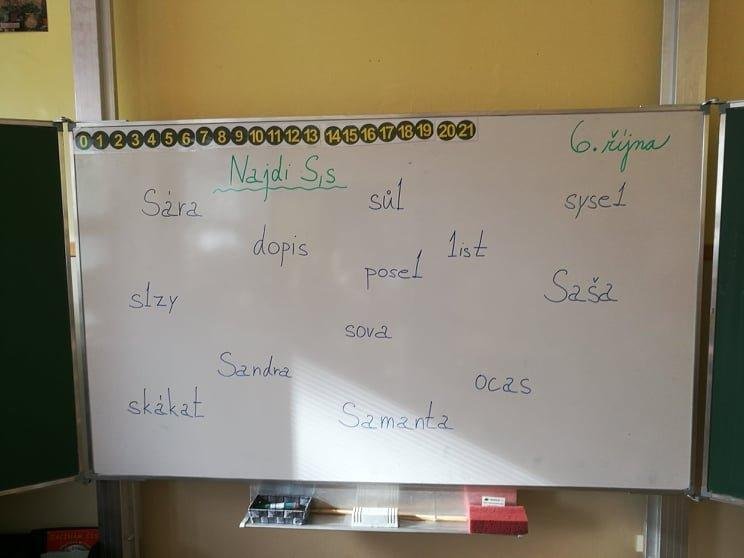 0 1 2 3 4 5 6 7 8 9 10 11 12 13 14 15 16 17 18 19 20 21
6. října
Najdi S,s
Sára sůl sysel
dopis list
posel
slzy Saša
sova
Sandra
ocas
skákat Samanta